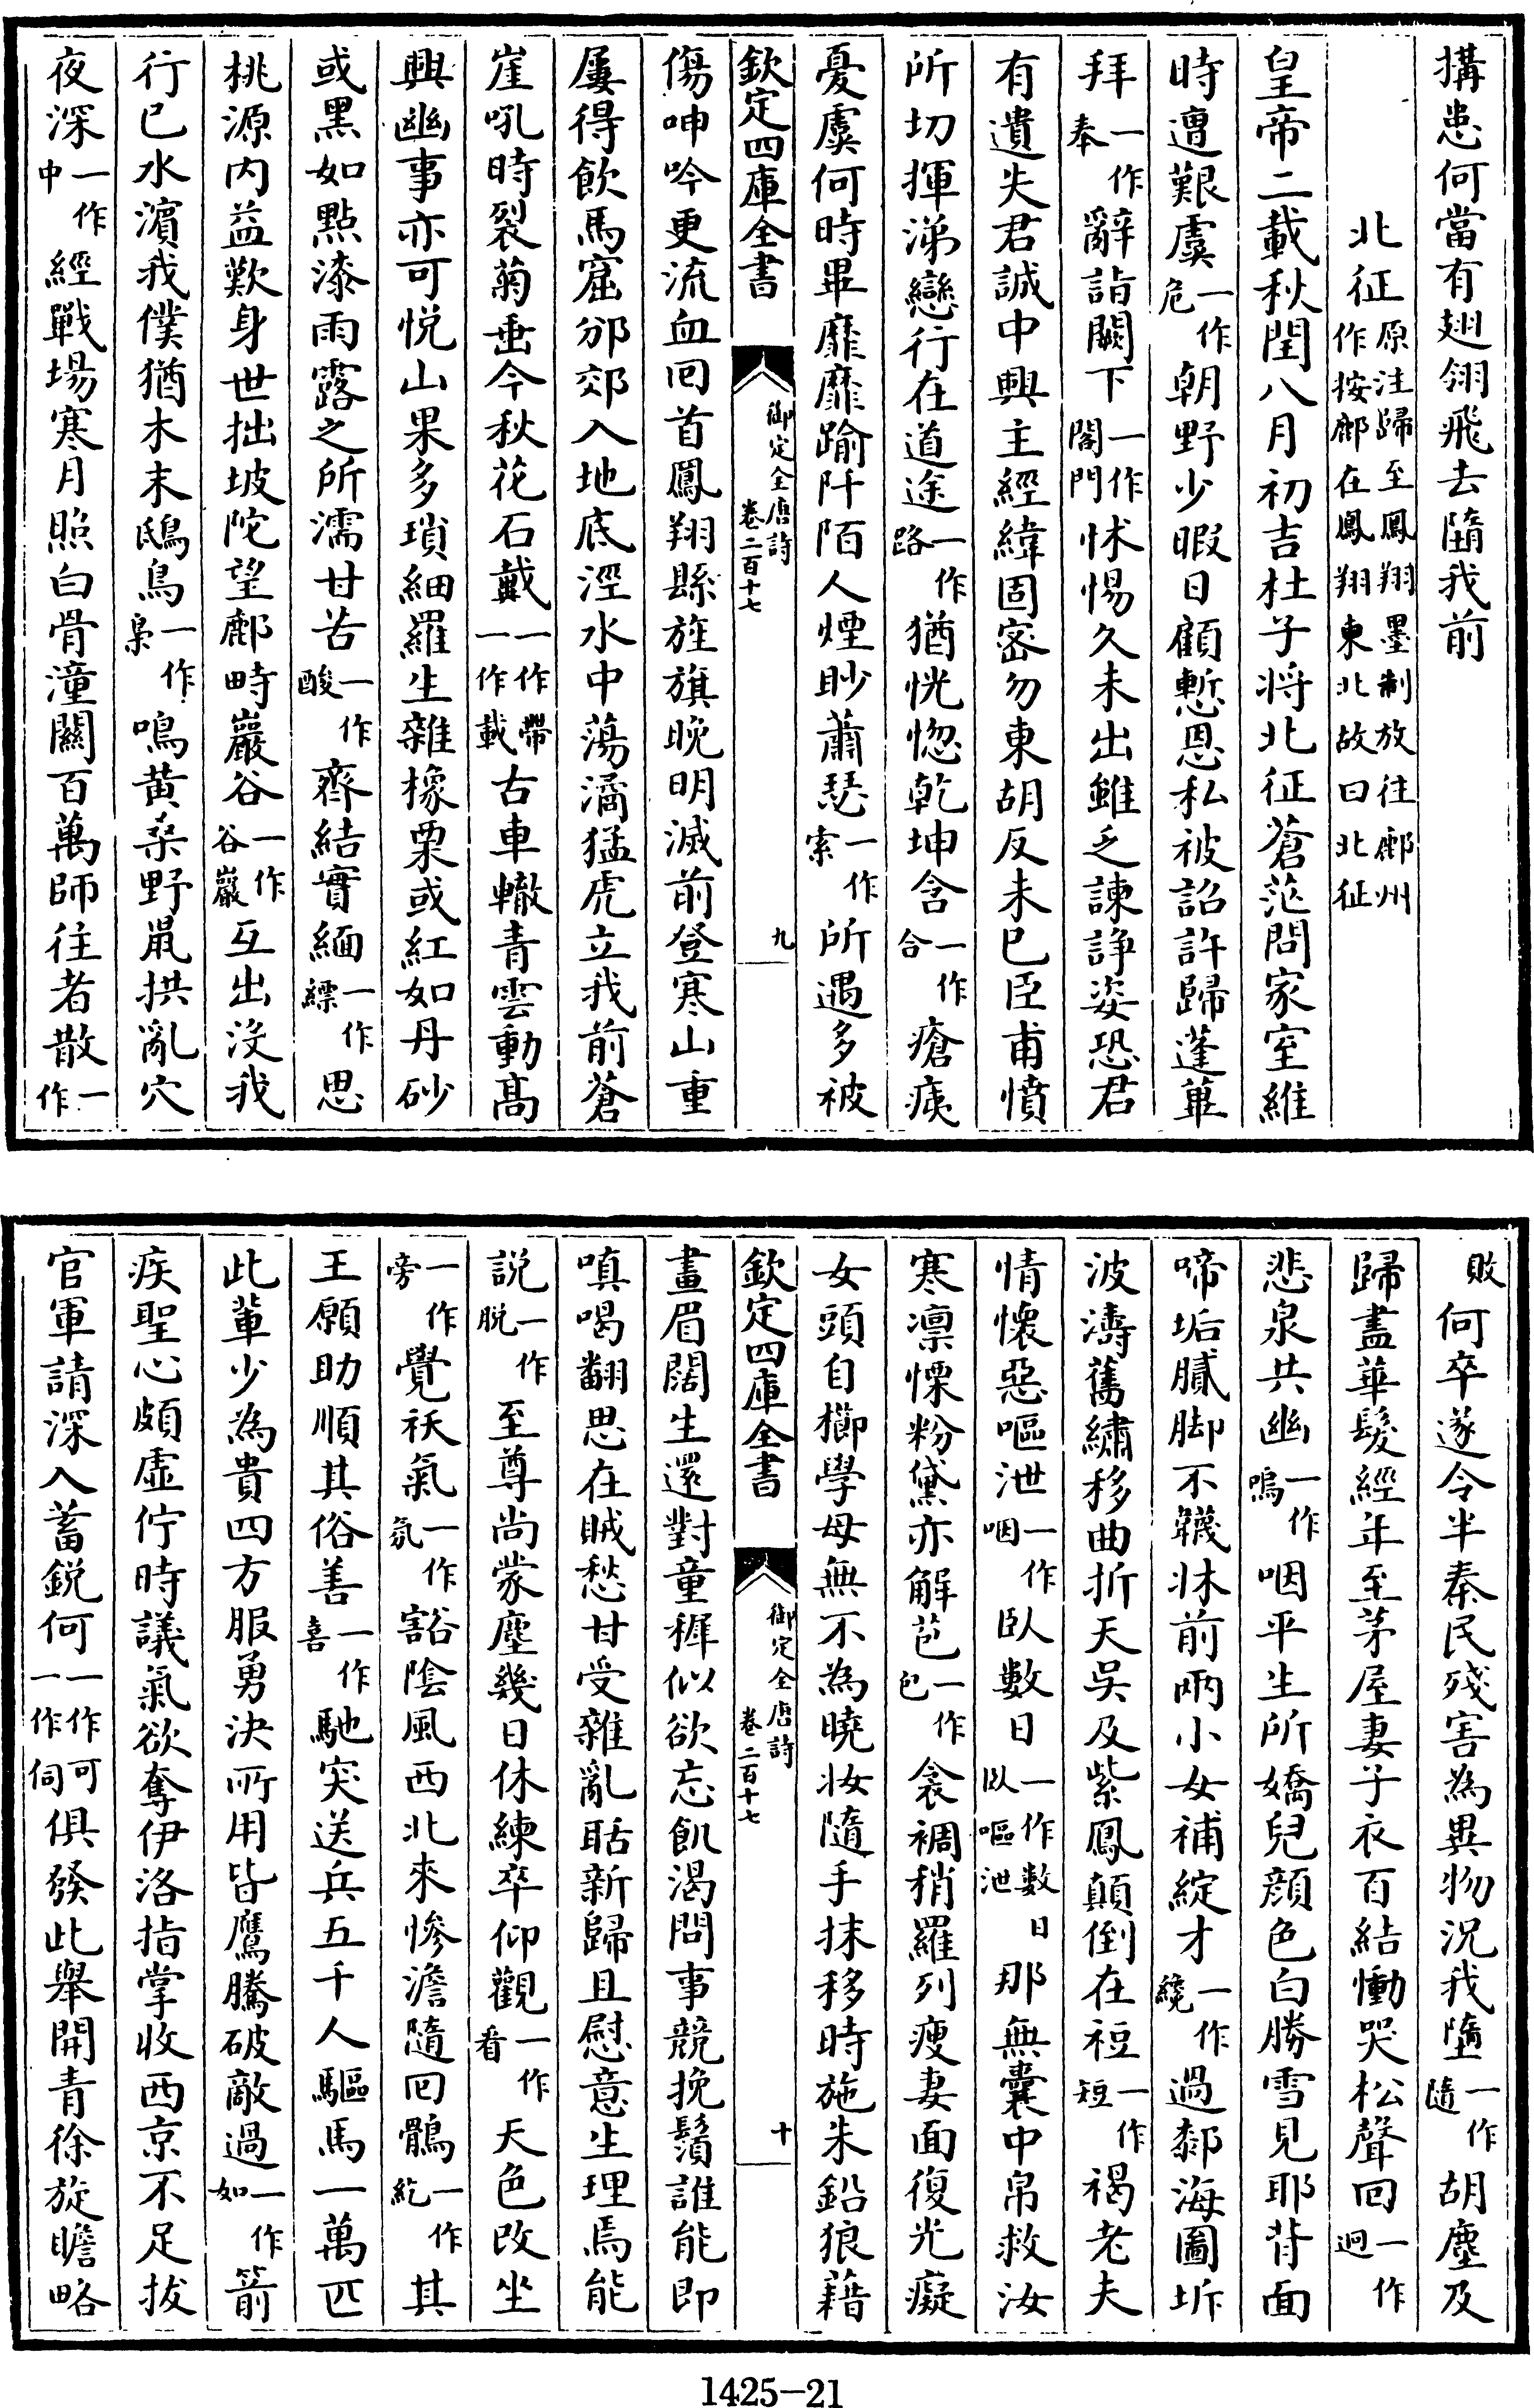 搆患何當有翅翎飛去墮我前
北征原注歸至鳳翔墨制放往鄜州作按鄜在鳳翔東北故曰北征
皇帝二載秋閏八月初吉杜子將北征蒼茫問家室維
時遭艱虞一作危朝野少暇日顧慙恩私被詔許歸蓬蓽
拜一作奉辭詣闕下一作閤門怵惕久未出雖乏諫諍姿恐君
有遺失君誠中興主經緯固密勿東胡反未已臣甫憤
所切揮涕戀行在道途一作路猶恍惚乾坤含一作合瘡痍
憂虞何時畢靡靡踰阡陌人煙眇蕭瑟一作索所遇多被
欽定四庫全書 御定全唐詩 卷二百十七 九
傷呻吟更流血回首鳳翔縣旌旗晚明滅前登寒山重
屢得飲馬窟邠郊入地底涇水中蕩潏猛虎立我前蒼
崖吼時裂菊垂今秋花石戴一作帶一作載古車轍青雲動高
興幽事亦可悅山果多瑣細羅生雜橡栗或紅如丹砂
或黑如點漆雨露之所濡甘苦一作酸齊結實緬一作縹思
桃源內益歎身世拙坡陀望鄜畤巖谷一作谷巖互出沒我
行已水濱我僕猶木末鴟鳥一作梟鳴黃桑野鼠拱亂穴
夜深一作中經戰場寒月照白骨潼關百萬師往者散一作
敗何卒遂令半秦民殘害為異物況我墮一作隨胡塵及
歸盡華髮經年至茅屋妻子衣百結慟哭松聲回一作迴
悲泉共幽一作嗚咽平生所嬌兒顏色白勝雪見耶背面
啼垢膩腳不韈牀前兩小女補綻才一作纔過䣛海圖坼
波濤舊繡移曲折天吳及紫鳳顛倒在裋一作短褐老夫
情懷惡嘔泄一作咽臥數日一作數日臥嘔泄那無囊中帛救汝
寒凛慄粉黛亦解苞一作包衾裯稍羅列瘦妻面復光癡
女頭自櫛學母無不為曉妝隨手抹移時施朱鉛狼藉
欽定四庫全書 御定全唐詩 卷二百十七 十
畫眉闊生還對童穉似欲忘飢渴問事競挽鬚誰能即
嗔喝翻思在賊愁甘受雜亂聒新歸且慰意生理焉能
說一作脫至尊尚蒙塵幾日休練卒仰觀一作看天色改坐
一作旁覺祅氣一作氛豁陰風西北來慘澹隨回鶻一作紇其
王願助順其俗善一作喜馳突送兵五千人驅馬一萬匹
此輩少為貴四方服勇決所用皆鷹騰破敵過一作如箭
疾聖心頗虛佇時議氣欲奪伊洛指掌收西京不足拔
官軍請深入蓄銳何一作可一作伺俱發此舉開青徐旋瞻略
1425-21